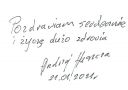 Pozdrawiam serdecznie
i życzę dużo zdrowia
Andrzej
21.01.2021r.